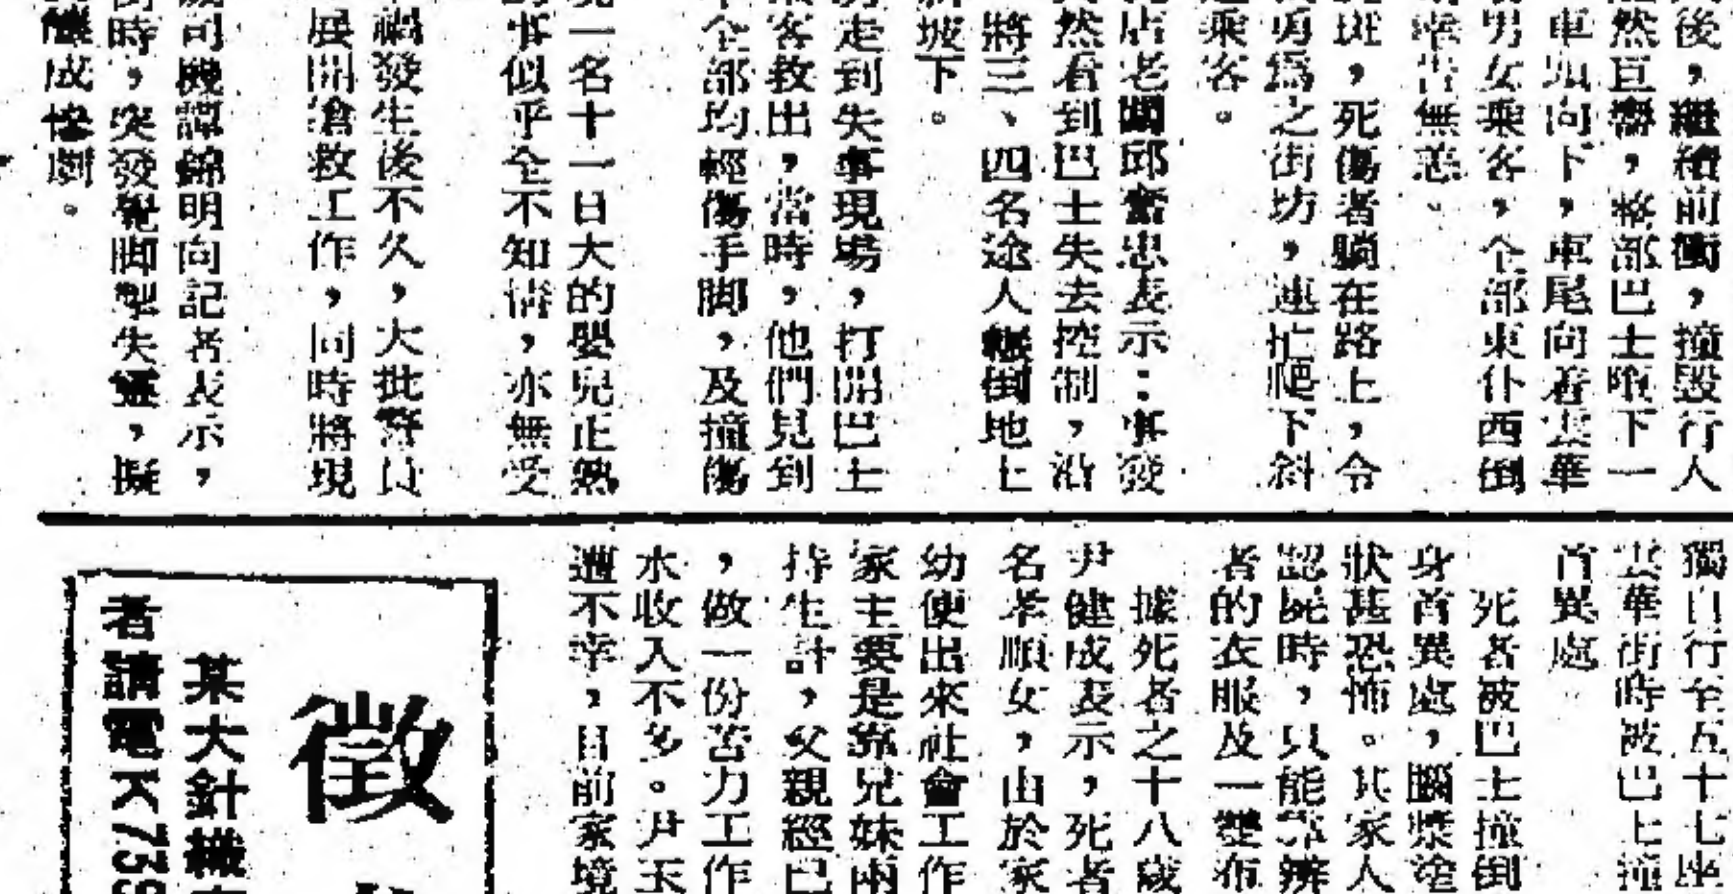 後，繼續前衝，撞毀行人
然巨響，整部巴士墮下一
車頭向下，車尾向着雲華
男女乘客，全部東仆西倒
幸告無恙。
斑，死傷者躺在路上，令
勇爲之街坊，連忙爬下斜
乘客。
店老闆邱奮忠表示：事發
然看到巴士失去控制，沿
將三、四名途人輾倒地上
坡下。
走到失事現場，打開巴士
客救出，當時，他們見到
全部均輕傷手脚，及撞傷
一名十一日大的嬰兒正熟
事似乎全不知情，亦無受
禍發生後不久，大批警員
展開搶救工作，同時將現
司機譚錦明向記者表示，
時，突發覺脚掣失靈，擬
釀成慘劇。
獨自行至五十七座
雲華街時被巴士撞
首異處
死者被巴士撞倒
身首異處，腦漿塗
狀甚恐怖。其家人
認屍時，只能靠辨
者的衣服及一雙布
據死者之十八歲
尹健成表示，死者
名孝順女，由於家
幼便出來社會工作
家主要是靠兄妹兩
持生計，父親經已
，做一份苦力工作
水收入不多。尹玉
遭不幸，目前家境
徵
某大針織
者請電K739